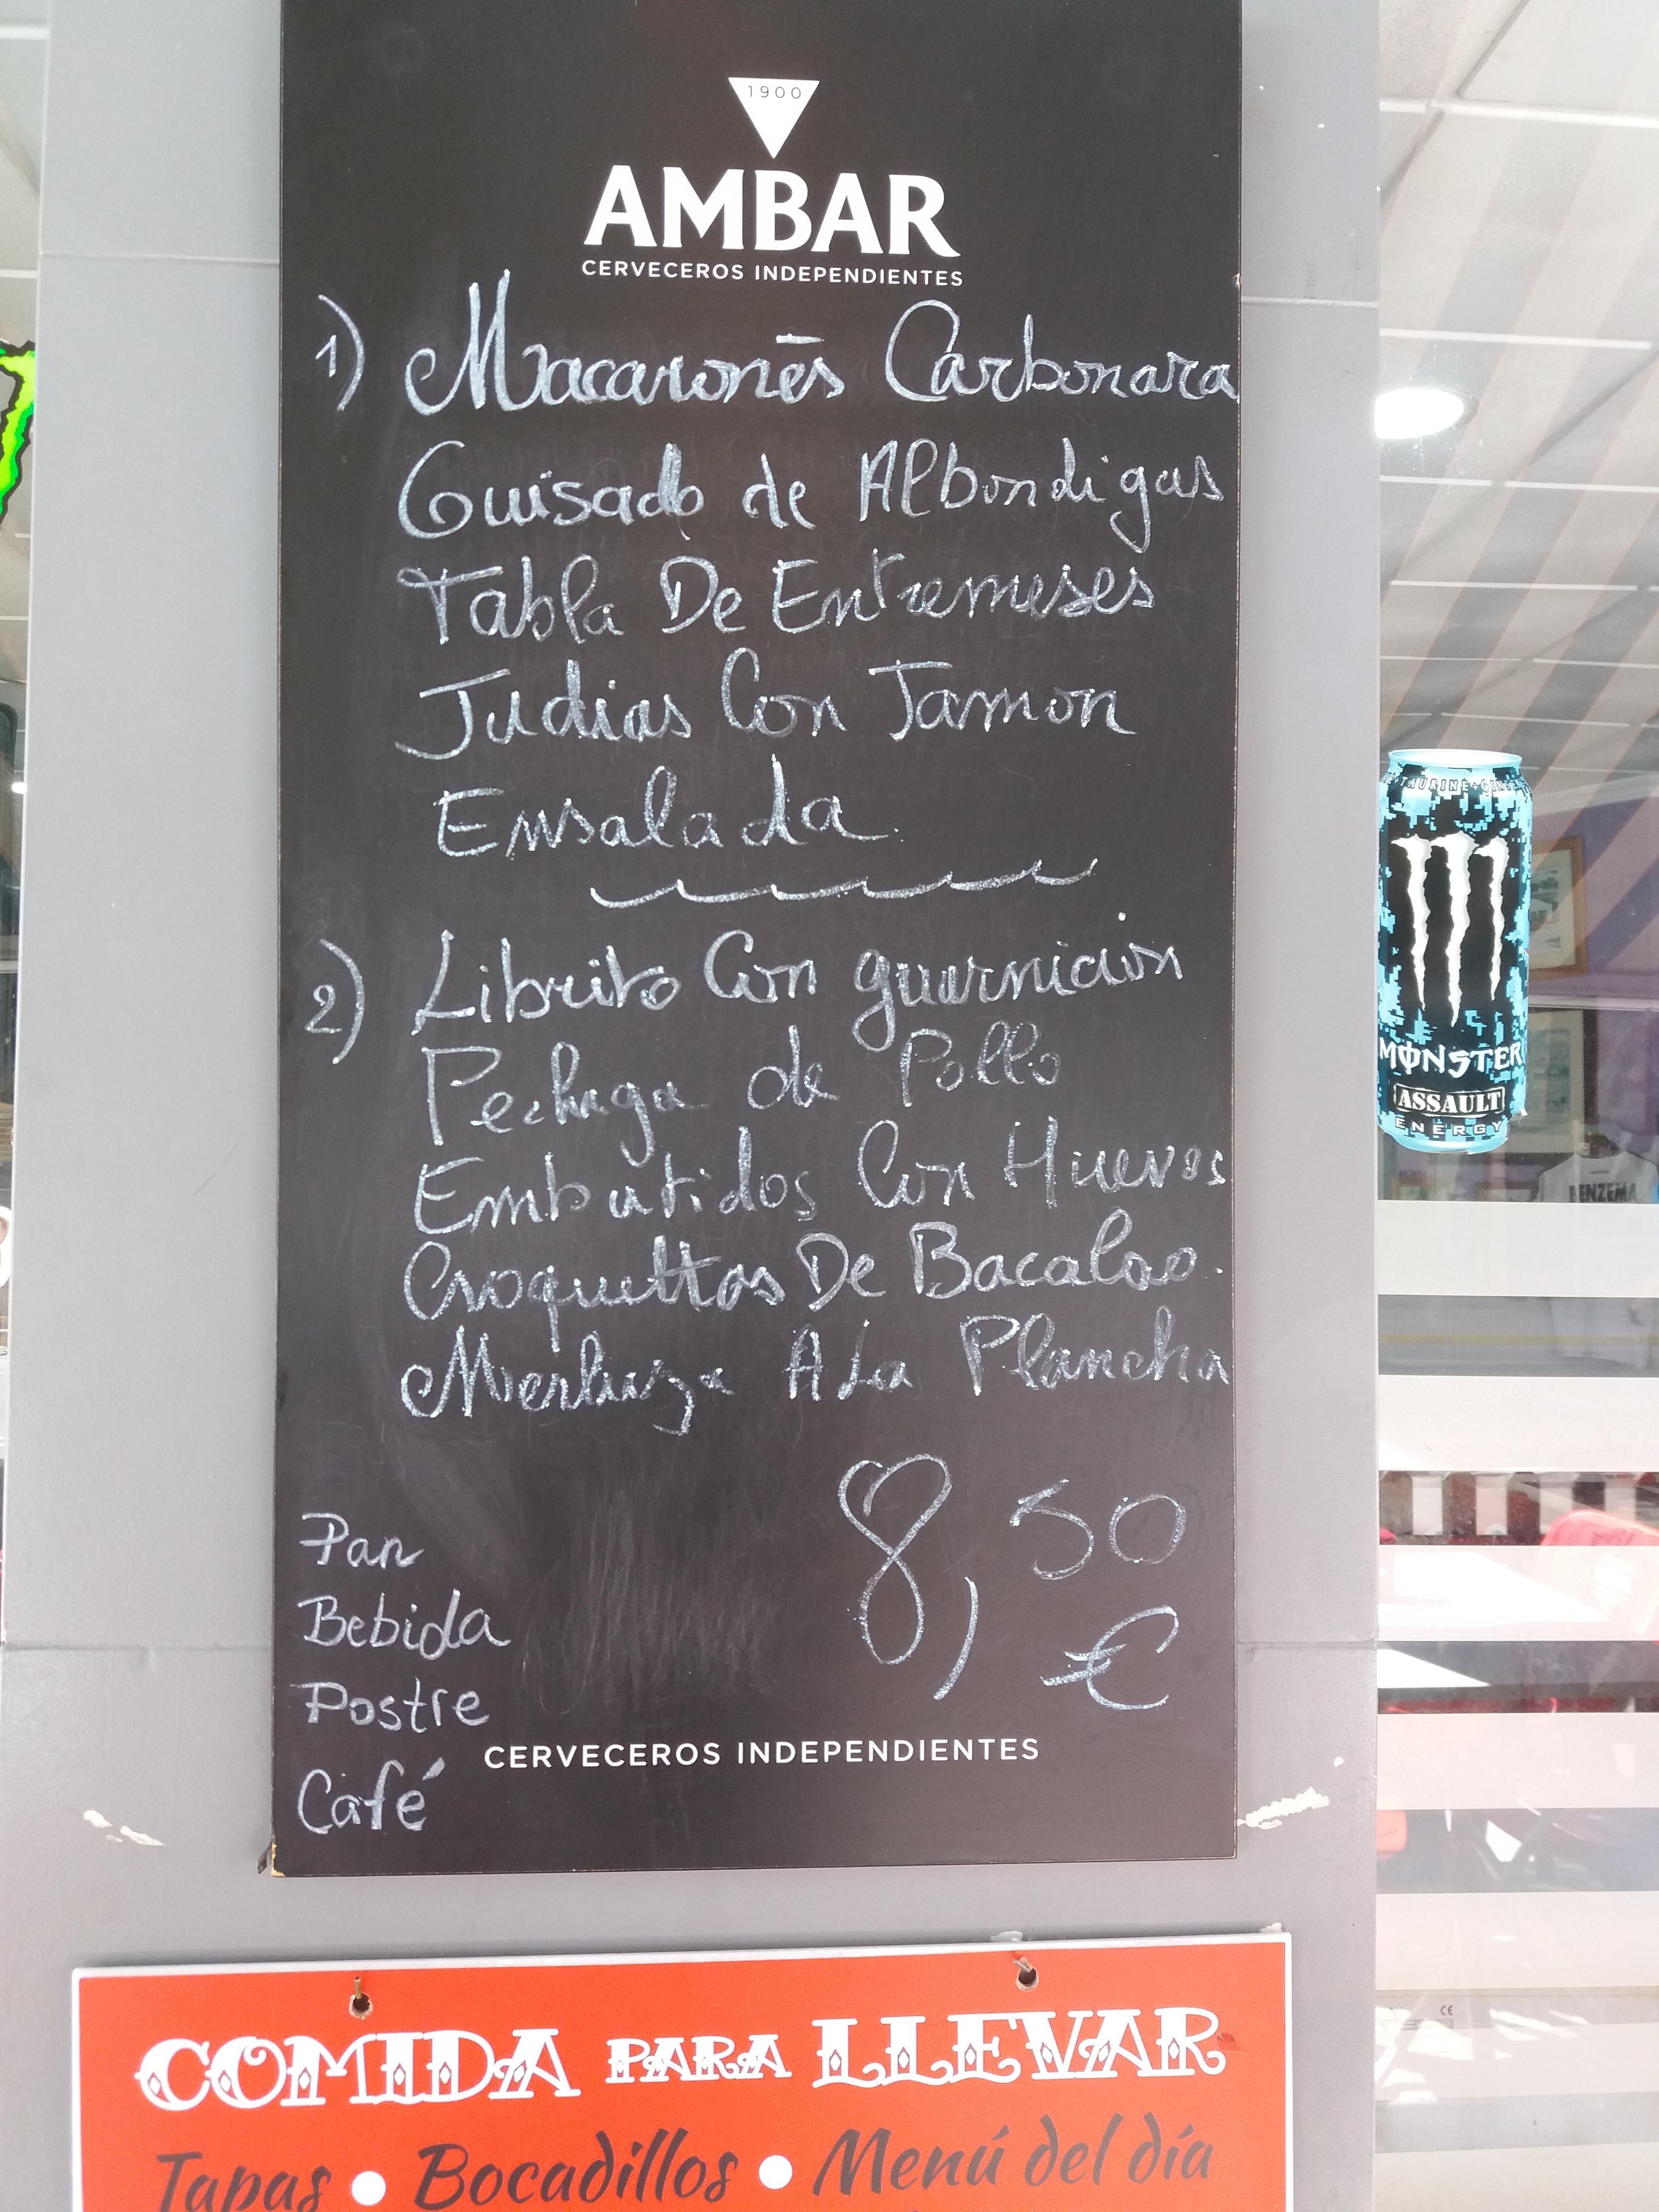 1900
AMBAR
CERVECEROS INDEPENDIENTES
1) Macarones Carbonara
Guisado de Albondigas
Tabla De Entremeses
Judias Con Jamon
Ensalada
2) Librito Con guarnicion
Pechuga de Pollo
Embutidos Con Huevos
Croquettas De Bacalao.
Merluza A La Plancha
8,50
€
Pan
Bebida
Postre
Café
CERVECEROS INDEPENDIENTES
COMIDA PARA LLEVAR
Tapas • Bocadillos • Menú del día
MONSTER
ASSAULT
ENERGY
BENZEMA
CE